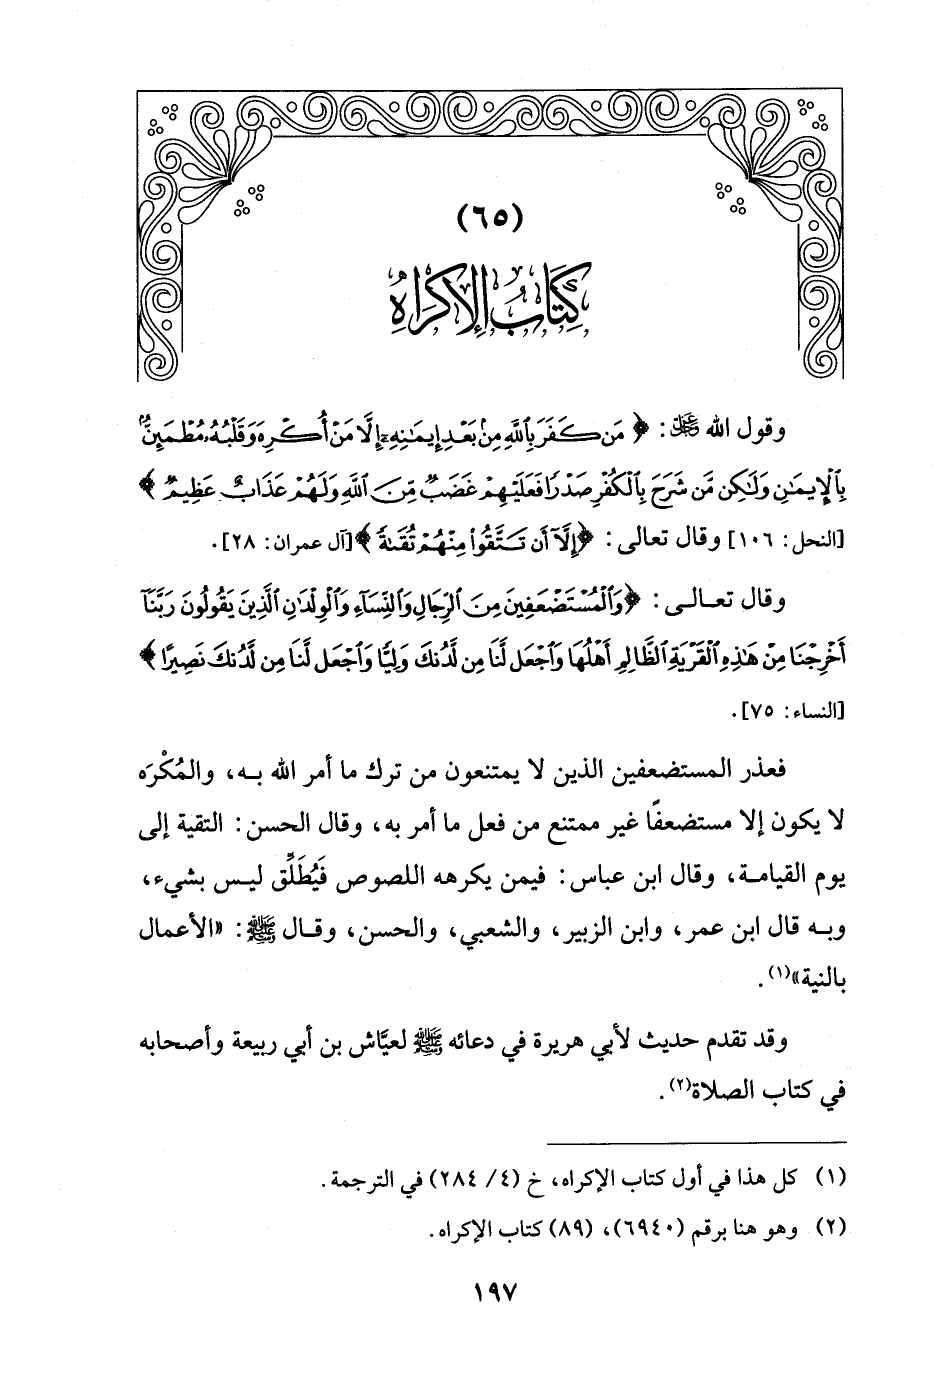 (٦٥)
كِتَابُ الإِكْرَاهِ
وقول الله ﷻ: ﴿مَن كَفَرَ بِٱللَّهِ مِنۢ بَعْدِ إِيمَٰنِهِۦٓ إِلَّا مَنْ أُكْرِهَ وَقَلْبُهُۥ مُطْمَئِنٌّۢ
بِٱلْإِيمَٰنِ وَلَٰكِن مَّن شَرَحَ بِٱلْكُفْرِ صَدْرًا فَعَلَيْهِمْ غَضَبٌ مِّنَ ٱللَّهِ وَلَهُمْ عَذَابٌ عَظِيمٌ﴾
[النحل: ١٠٦] وقال تعالى: ﴿إِلَّآ أَن تَتَّقُوا۟ مِنْهُمْ تُقَىٰةً﴾ [آل عمران: ٢٨].
وقال تعـالـى: ﴿وَٱلْمُسْتَضْعَفِينَ مِنَ ٱلرِّجَالِ وَٱلنِّسَآءِ وَٱلْوِلْدَٰنِ ٱلَّذِينَ يَقُولُونَ رَبَّنَآ
أَخْرِجْنَا مِنْ هَٰذِهِ ٱلْقَرْيَةِ ٱلظَّالِمِ أَهْلُهَا وَٱجْعَل لَّنَا مِن لَّدُنكَ وَلِيًّا وَٱجْعَل لَّنَا مِن لَّدُنكَ نَصِيرًا﴾
[النساء: ٧٥].
فعذر المستضعفين الذين لا يمتنعون من ترك ما أمر الله بـه، والمُكْرَه
لا يكون إلا مستضعفًا غير ممتنع من فعل ما أمر به، وقال الحسن: التقية إلى
يوم القيامـة، وقال ابن عباس: فيمن يكرهه اللصوص فَيُطَلِّق ليـس بشيء،
وبـه قال ابن عمر، وابن الزبير، والشعبي، والحسن، وقـال ﷺ: «الأعمال
بالنية»(١).
وقد تقدم حديث لأبي هريرة في دعائه ﷺ لعيَّاش بن أبي ربيعة وأصحابه
في كتاب الصلاة(٢).
(١) كل هذا في أول كتاب الإكراه، خ (٤/ ٢٨٤) في الترجمة.
(٢) وهو هنا برقم (٦٩٤٠)، (٨٩) كتاب الإكراه.
١٩٧